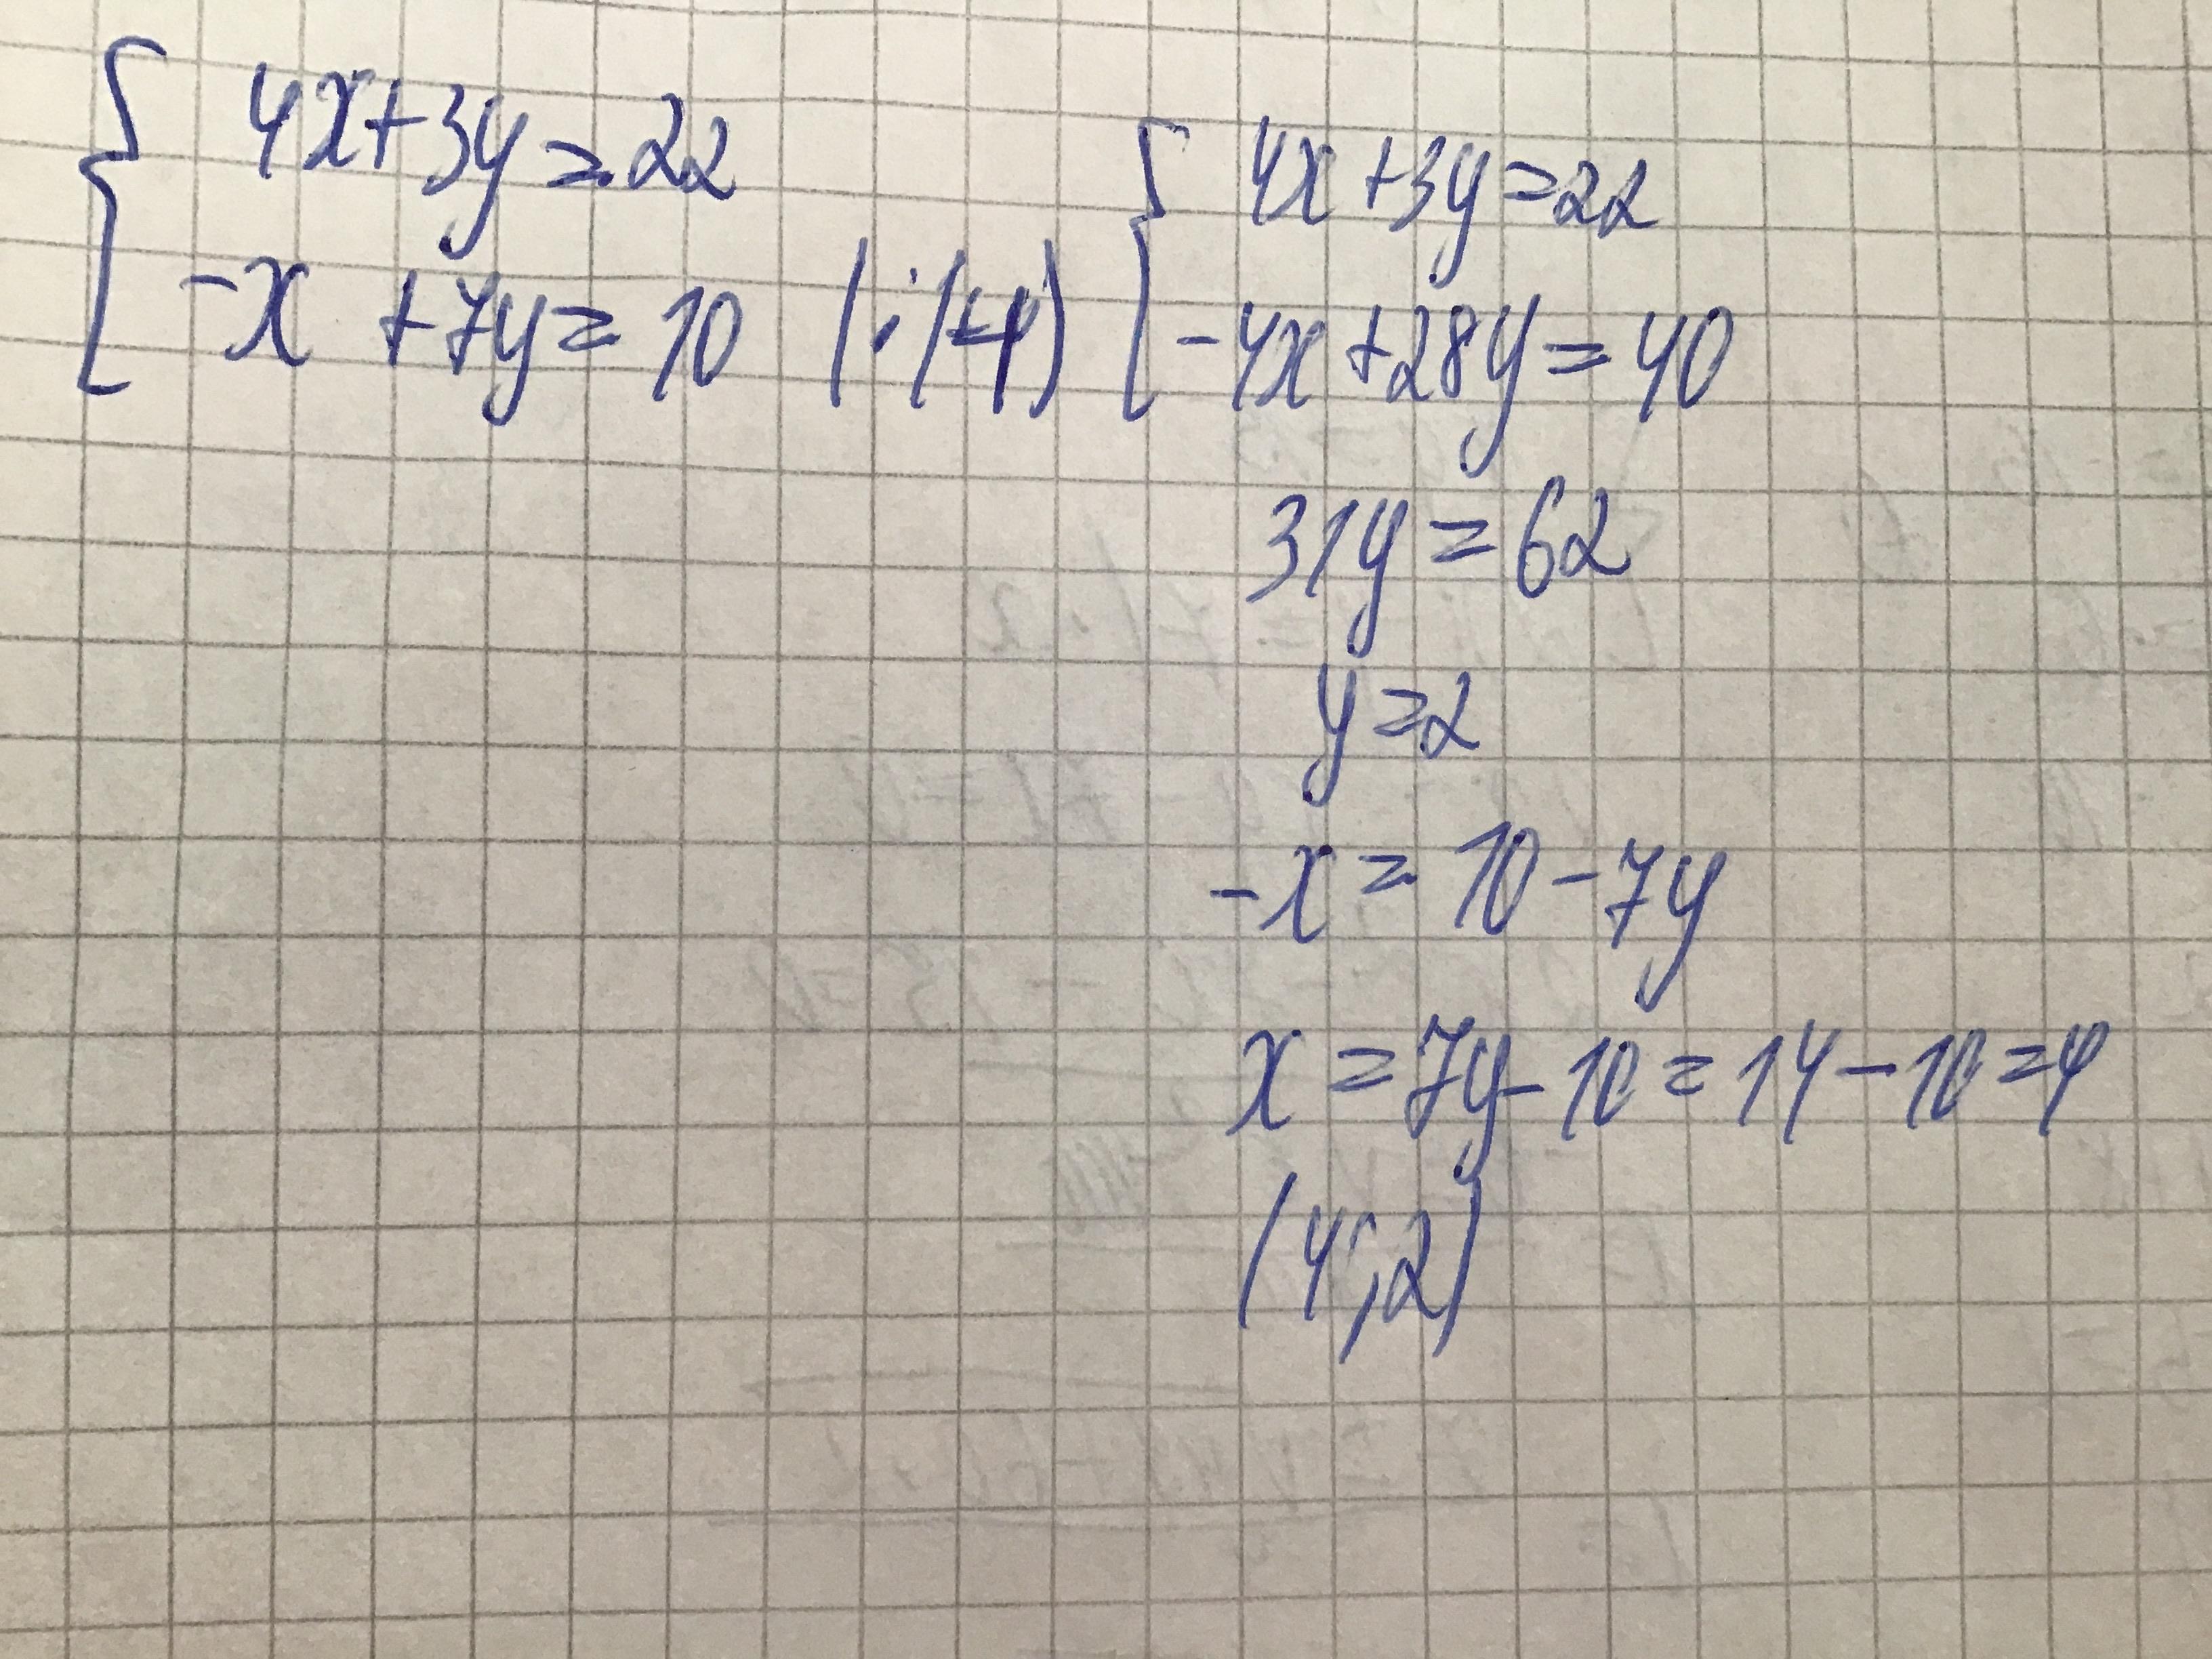 4x+3y=22
-x+7y=10 (·(+4)
4x+3y=22
-4x+28y=40
31y=62
y=2
-x=10-7y
x=7y-10=14-10=4
(4;2)